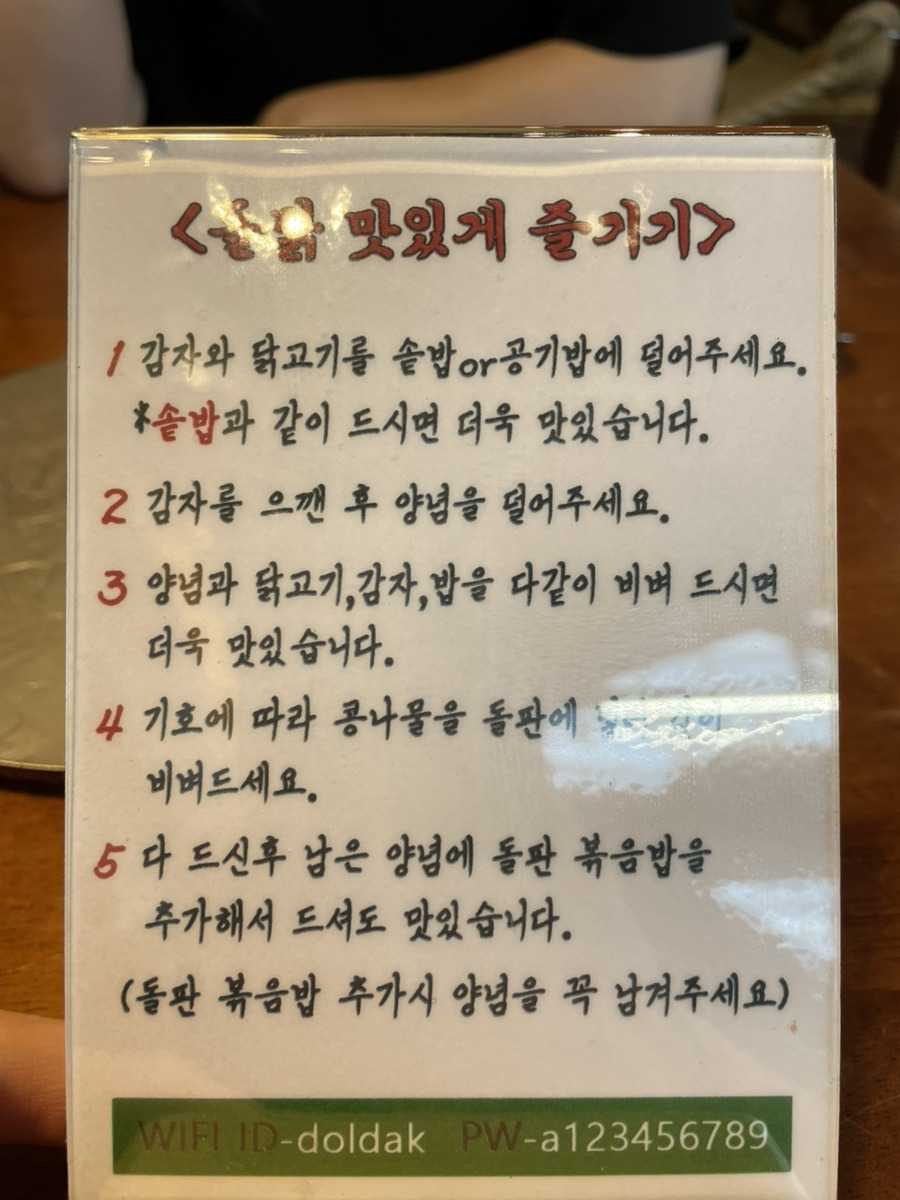 <돌닭 맛있게 즐기기>
1 감자와 닭고기를 솥밥or공기밥에 덜어주세요.
*솥밥과 같이 드시면 더욱 맛있습니다.
2 감자를 으깬 후 양념을 덜어주세요.
3 양념과 닭고기,감자,밥을 다같이 비벼 드시면
더욱 맛있습니다.
4 기호에 따라 콩나물을 돌판에 같이
비벼드세요.
5 다 드신후 남은 양념에 돌판 볶음밥을
추가해서 드셔도 맛있습니다.
(돌판 볶음밥 추가시 양념을 꼭 남겨주세요)
WIFI ID-doldak PW-a123456789